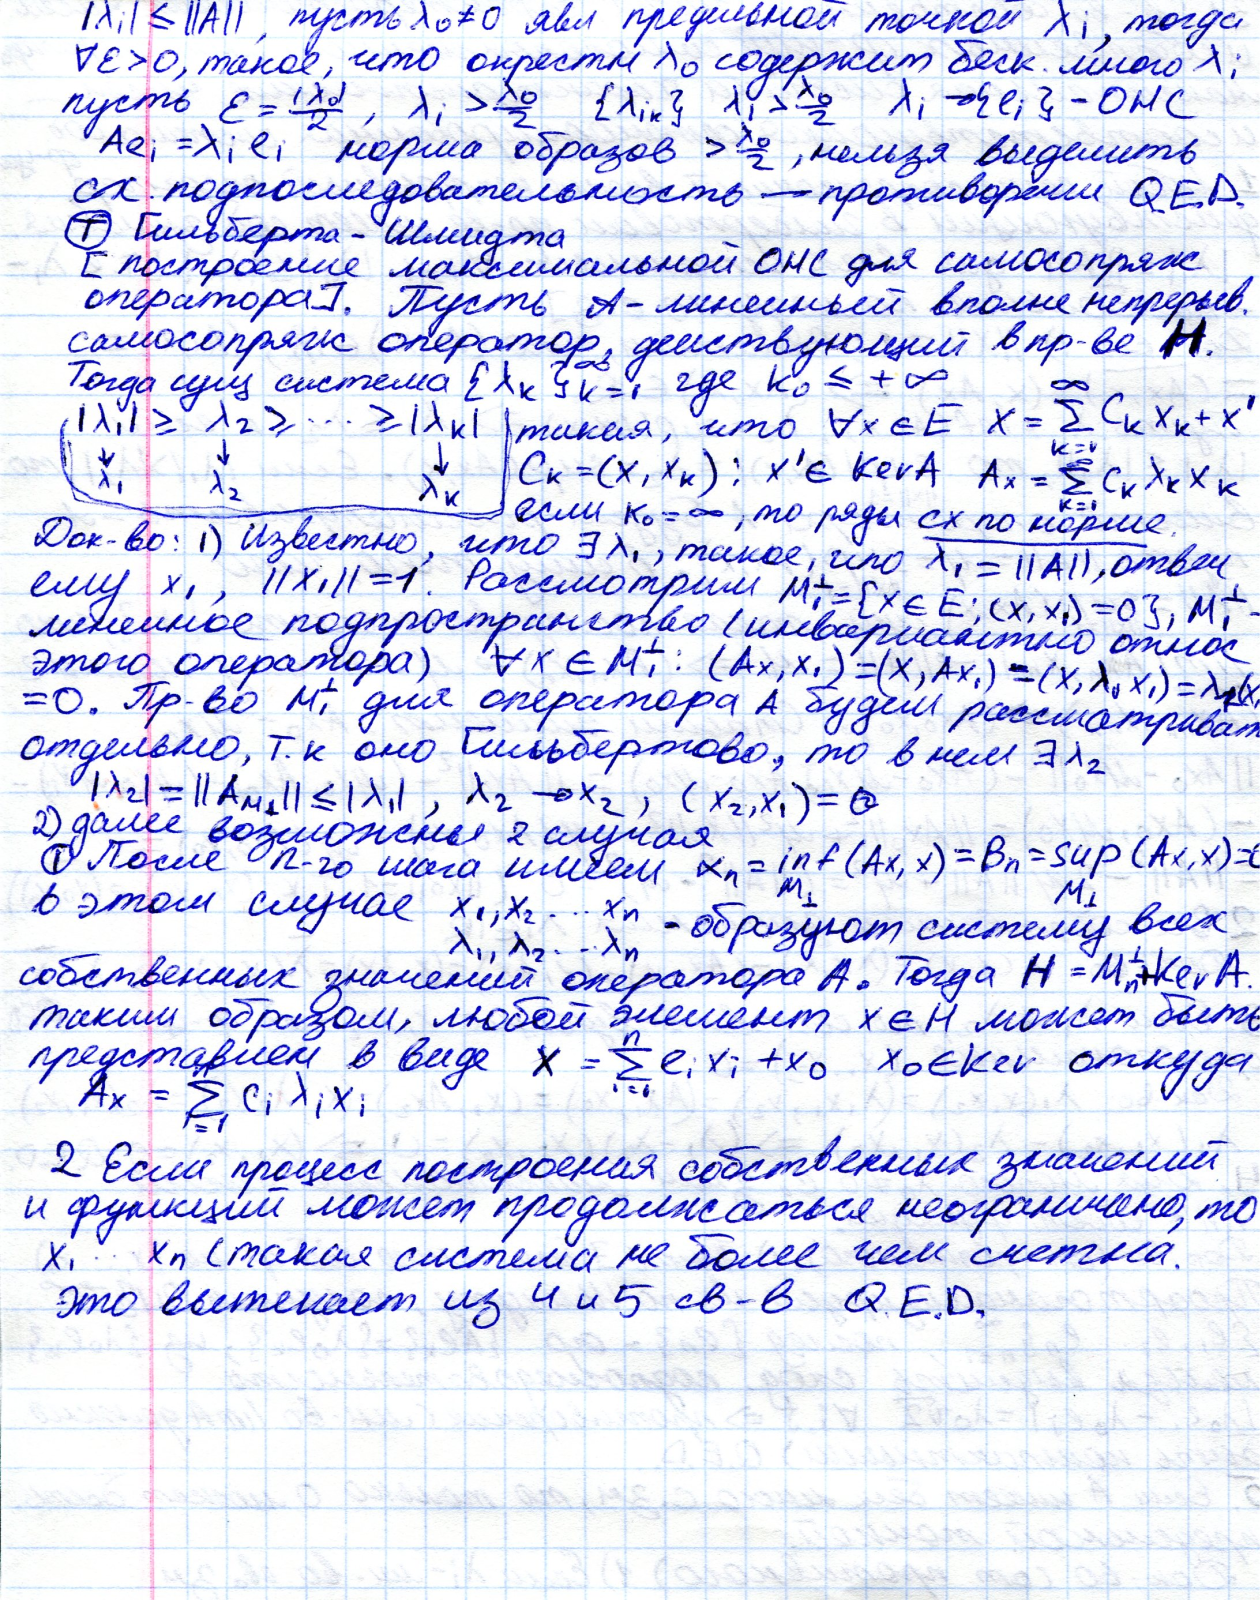 |λi| ≤ ||A||, пусть λ0 ≠ 0 явл предельной точкой λi, тогда
∀ε>0, такое, что окрестн λ0 содержит беск. много λi
пусть ε = |λ0|/2, λi > λ0/2 {λik} λi > λ0/2 λi → {ei} - ОНС
Aei = λi ei норма образов > λ0/2, нельзя выделить
сх. подпоследовательность — противоречие Q.E.D.
Ⓣ Гильберта - Шмидта
[построение максимальной ОНС для самосопряж
оператора]. Пусть A - линейный вполне непрерыв.
самосопряж оператор, действующий в пр-ве H.
Тогда сущ система {λk}∞k=1 где k0 ≤ +∞
|λ1| ≥ λ2 ≥ ... ≥ |λk| такая, что ∀x ∈ E x = ∞Σk=1 Ck xk + x'
↓ ↓ ↓ Ck = (x, xk); x' ∈ Ker A Ax = ∞Σk=1 Ck λk xk
λ1 λ2 λk если k0 = ∞, то ряды сх по норме.
Док-во: 1) Известно, что ∃λ1, такое, что λ1 = ||A||, отвеч
ему x1, ||x1|| = 1. Рассмотрим M1⊥ = {x ∈ E; (x, x1) = 0}, M1⊥ -
линейное подпространство (инвариантно относ
этого оператора) ∀x ∈ M1⊥: (Ax, x1) = (x, Ax1) = (x, λ1 x1) = λ1(x,
= 0. Пр-во M1⊥ для оператора A будем рассматриват
отдельно, т.к оно Гильбертово, то в нем ∃λ2
|λ2| = ||AM⊥|| ≤ |λ1|, λ2 → x2, (x2, x1) = 0
2) далее возможны 2 случая
① После n-го шага имеем αn = inf M⊥ (Ax, x) = Bn = sup M⊥ (Ax, x) = 0
в этом случае x1, x2 ... xn - образуют систему всех
λ1, λ2 ... λn
собственных значений оператора A. Тогда H = Mn⊥ + Ker A.
таким образом, любой элемент x ∈ H может быть
представлен в виде x = nΣi=1 ei xi + x0 x0 ∈ Ker откуда
Ax = nΣi=1 ci λi xi
2 Если процесс построения собственных значений
и функций может продолжаться неограничено, то
x1 ... xn (такая система не более чем счетна.
Это вытекает из 4 и 5 св-в Q.E.D.